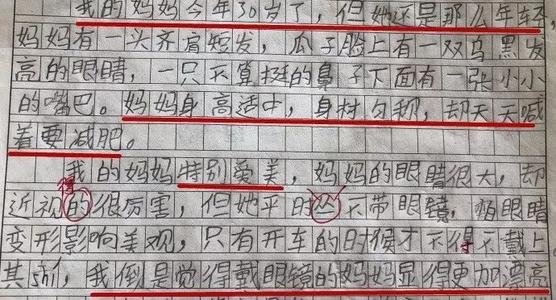 我的妈妈今年30岁了，但她还是那么年轻，
妈妈有一头齐肩短发，瓜子脸上有一双乌黑发
高的眼睛，一只不算挺的鼻子下面有一张小小
的嘴巴。妈妈身高适中，身材匀称，却天天喊
着要减肥。
我的妈妈特别爱美，妈妈的眼睛很大，却
得
近视的很厉害，但她平时从不带眼镜，怕眼睛
变形影响美观，只有开车的时候才不得不戴上
其实，我倒是觉得戴眼镜的妈妈显得更加漂高